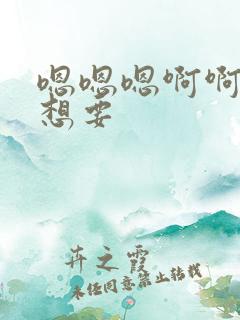 嗯嗯嗯啊啊
想要
卉之霞
未经同意禁止转载